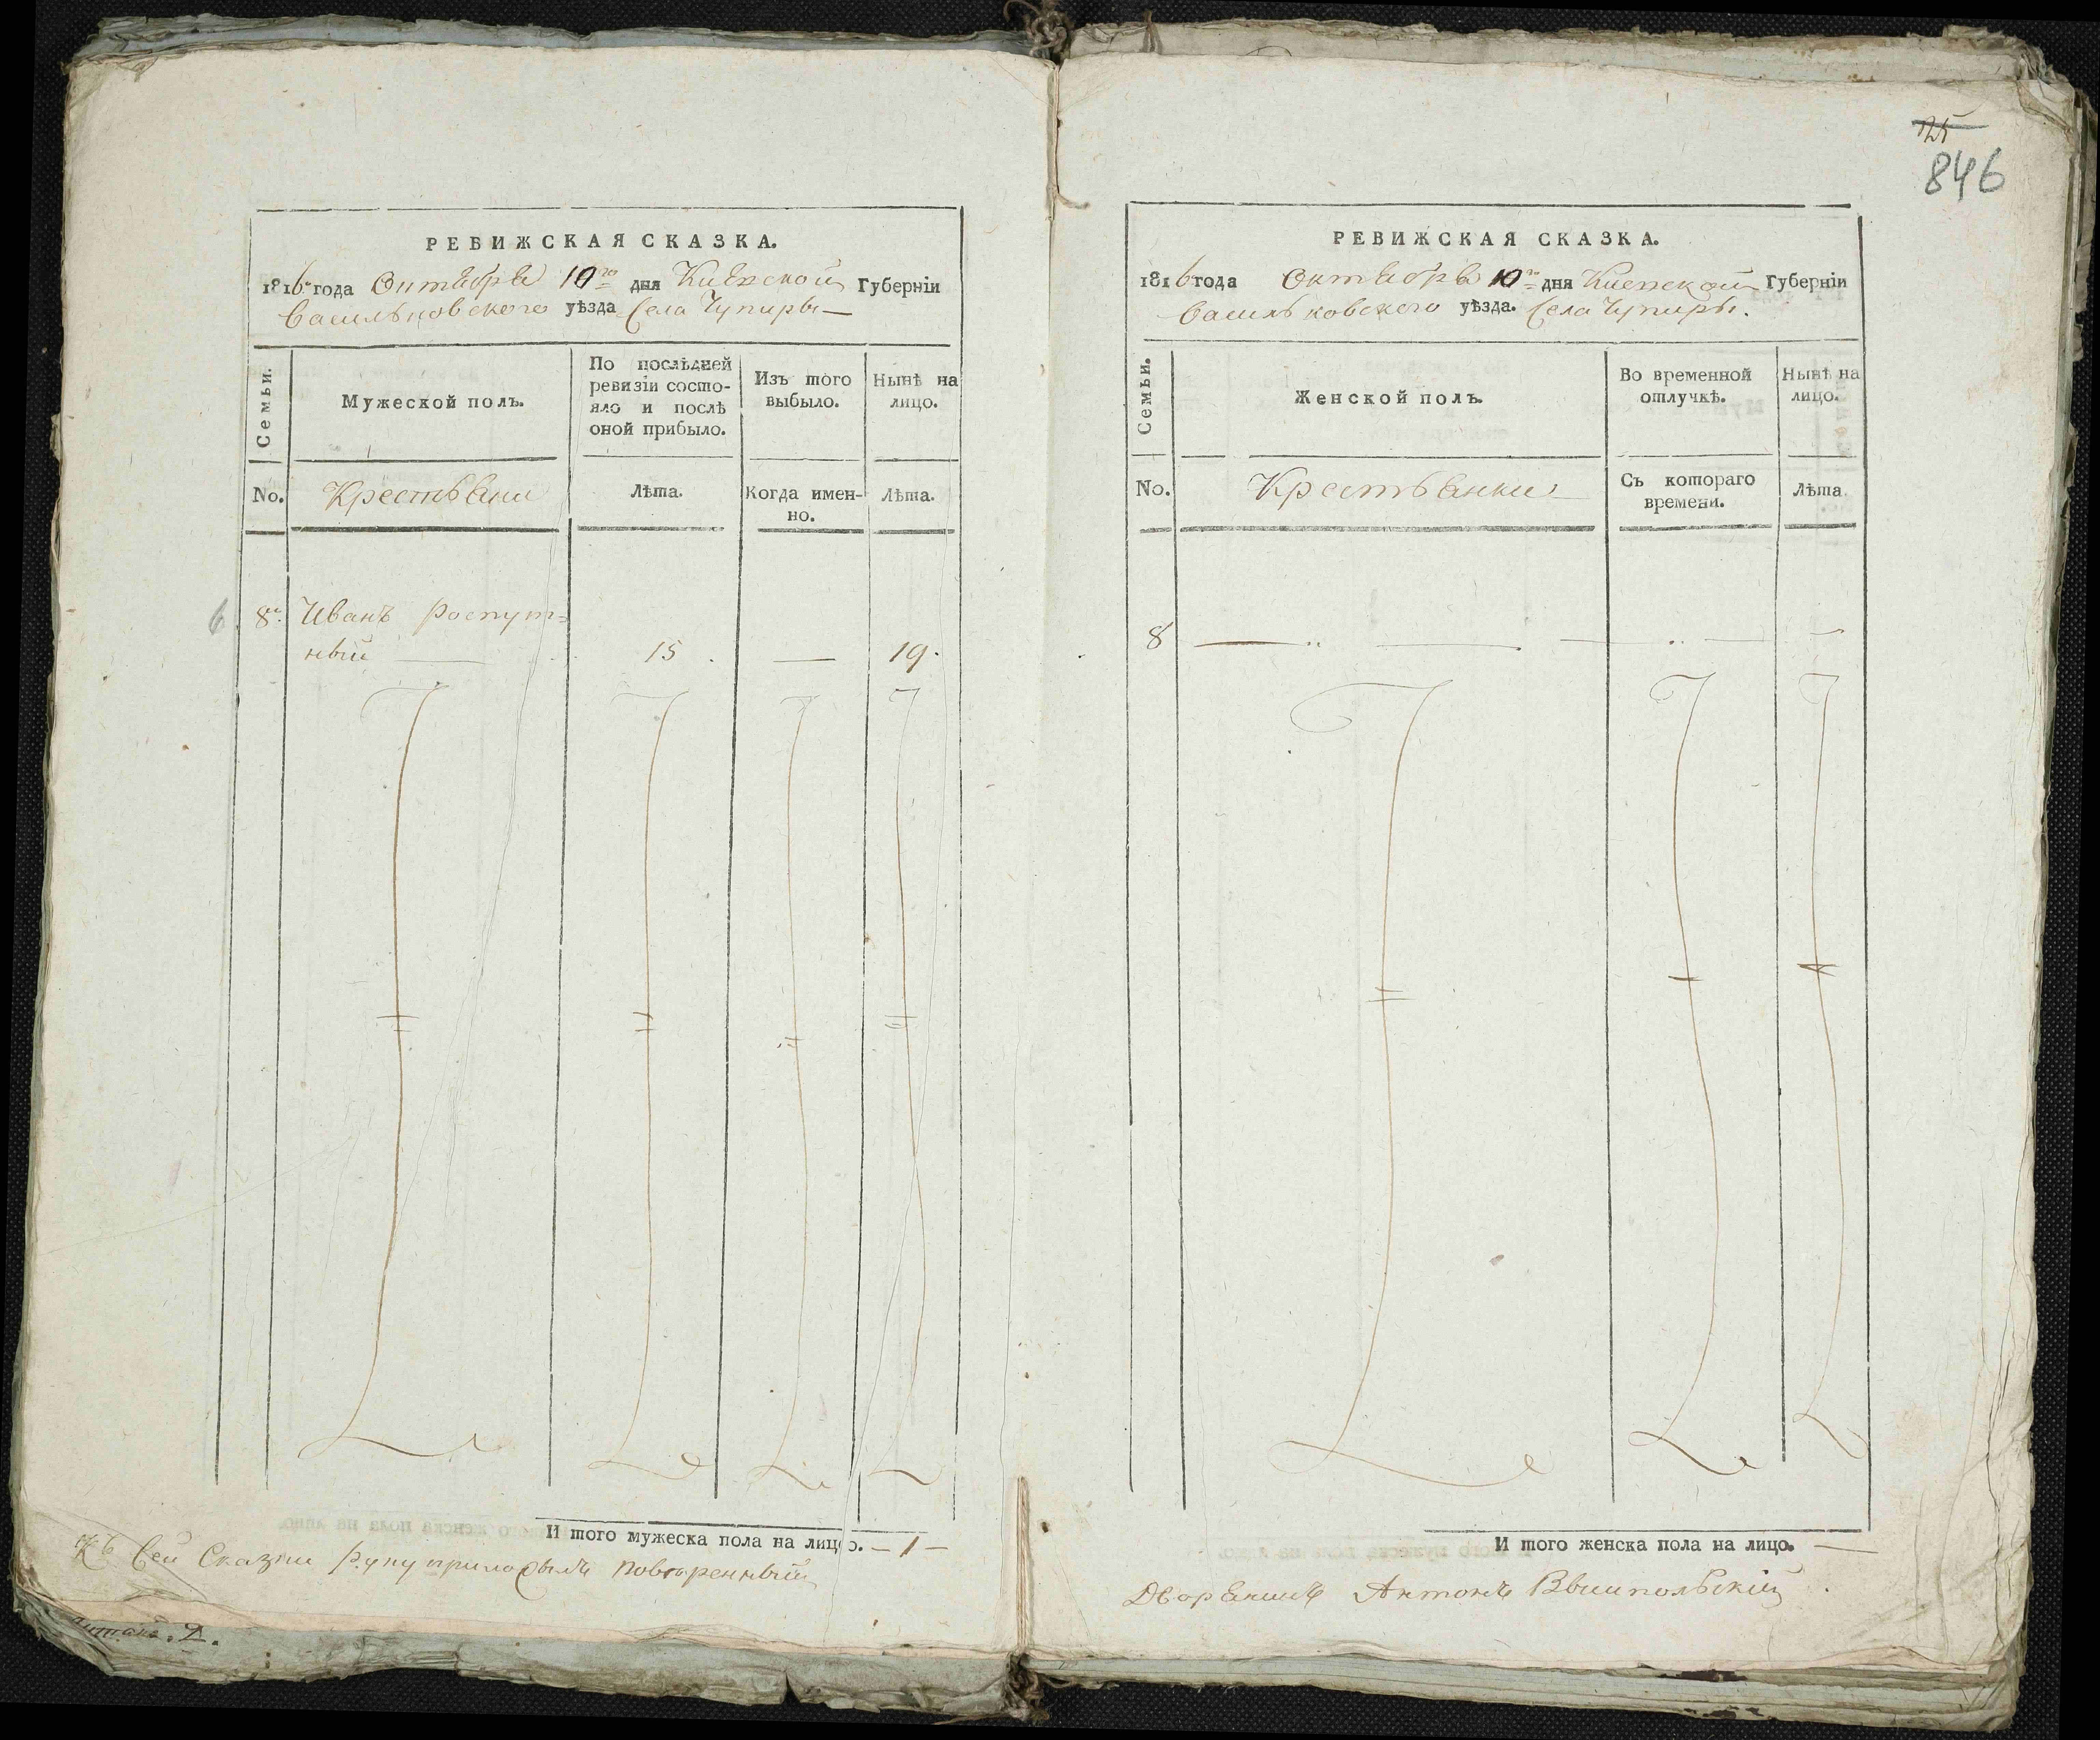 125
846
РЕВИЖСКАЯ СКАЗКА.
1816 года Октября 10го дня Кіевской Губерніи
Васильковского уѣзда Села Чупиры—
Семьи.
Мужеской полъ.
По послѣдней
ревизіи состо-
яло и послѣ
оной прибыло.
Изъ того
выбыло.
Нынѣ на
лицо.
No.
Крестьяни
Лѣта.
Когда имен-
но.
Лѣта.
6
8. Иванъ Роспут=
ный — 15. — 19.
И того мужеска пола на лицо. — 1 —
Къ сей Сказки руку приложилъ Повѣренный
РЕВИЖСКАЯ СКАЗКА.
1816 года Октября 10го дня Кіевской Губерніи
Васильковского уѣзда. Села Чупиры.
Семьи.
Женской полъ.
Во временной
отлучкѣ.
Нынѣ на
лицо.
No.
Крестьянки
Съ котораго
времени.
Лѣта.
8
И того женска пола на лицо. —
Дворянинъ Антонъ